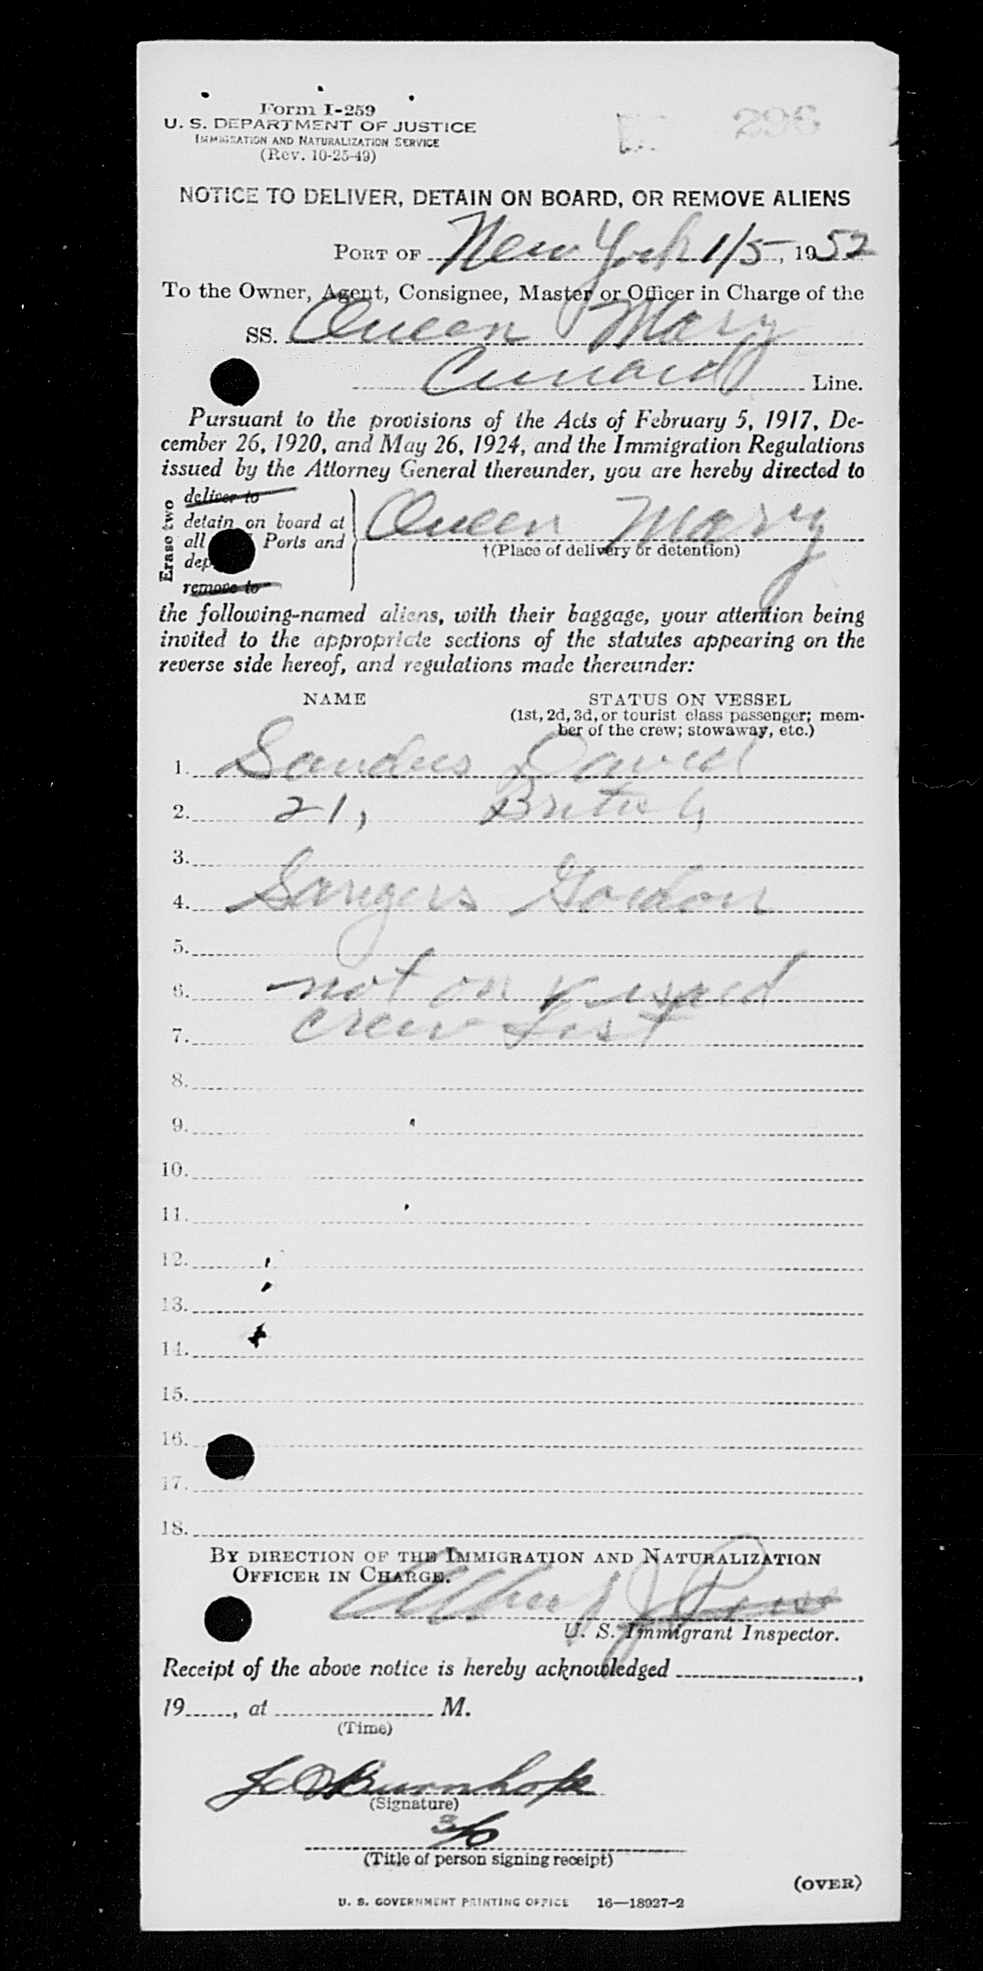 Form I-259
U. S. DEPARTMENT OF JUSTICE
IMMIGRATION AND NATURALIZATION SERVICE
(Rev. 10-25-49)
296
NOTICE TO DELIVER, DETAIN ON BOARD, OR REMOVE ALIENS
PORT OF New York 1/5, 1952
To the Owner, Agent, Consignee, Master or Officer in Charge of the
SS. Queen Mary
Cunard Line.
Pursuant to the provisions of the Acts of February 5, 1917, De-
cember 26, 1920, and May 26, 1924, and the Immigration Regulations
issued by the Attorney General thereunder, you are hereby directed to
Erase two
deliver to
detain on board at
all Ports and
dep
remove to
Queen Mary
†(Place of delivery or detention)
the following-named aliens, with their baggage, your attention being
invited to the appropriate sections of the statutes appearing on the
reverse side hereof, and regulations made thereunder:
NAME STATUS ON VESSEL
(1st, 2d, 3d, or tourist class passenger; mem-
ber of the crew; stowaway, etc.)
1. Sanders David
2. 21, British
3.
4. Sangers Gordon
5.
6. not on visaed
7. crew list
8.
9.
10.
11.
12.
13.
14.
15.
16.
17.
18.
BY DIRECTION OF THE IMMIGRATION AND NATURALIZATION
OFFICER IN CHARGE.
Albert J.
U. S. Immigrant Inspector.
Receipt of the above notice is hereby acknowledged ,
19 , at M.
(Time)
Burnhope
(Signature)
3/0
(Title of person signing receipt)
(OVER)
U. S. GOVERNMENT PRINTING OFFICE 16—18927-2